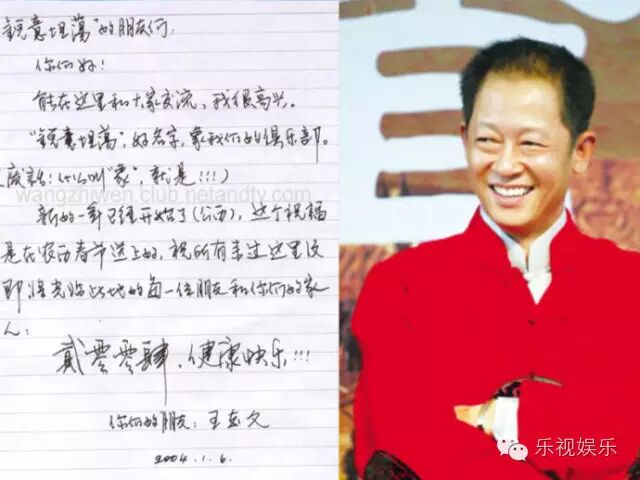 锐意坦荡"的朋友们:
你们好!
能在这里和大家交流,我很高兴。
"锐意坦荡",好名字,象我们的俱乐部。
废话!什么叫"象",就是!!!)
wangzhiwen.club.netandtv.com
新的一年已经开始了(公历),这个祝福
是在农历春节送上的,祝所有来过这里及
即将光临此地的每一位朋友和你们的家
人:
贰零零肆,健康快乐!!!
你们的朋友:王志文
2004.1.6.
乐视娱乐